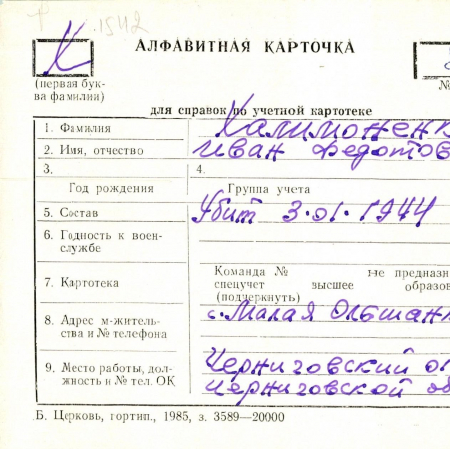 1542
К
АЛФАВИТНАЯ КАРТОЧКА
(первая бук-
ва фамилии)
№
для справок по учетной картотеке
1. Фамилия Калимонен
2. Имя, отчество Иван Федотов
3. 4.
Год рождения Группа учета
5. Состав Убит 3.01.1944
6. Годность к воен-
службе
Команда № не предназн
7. Картотека спецучет высшее образов
(подчеркнуть)
8. Адрес м-житель-
ства и № телефона с. Малая Ольшан
9. Место работы, дол-
жность и № тел. ОК Черниговский
Черниговской об
Б. Церковь, гортип., 1985, з. 3589—20000